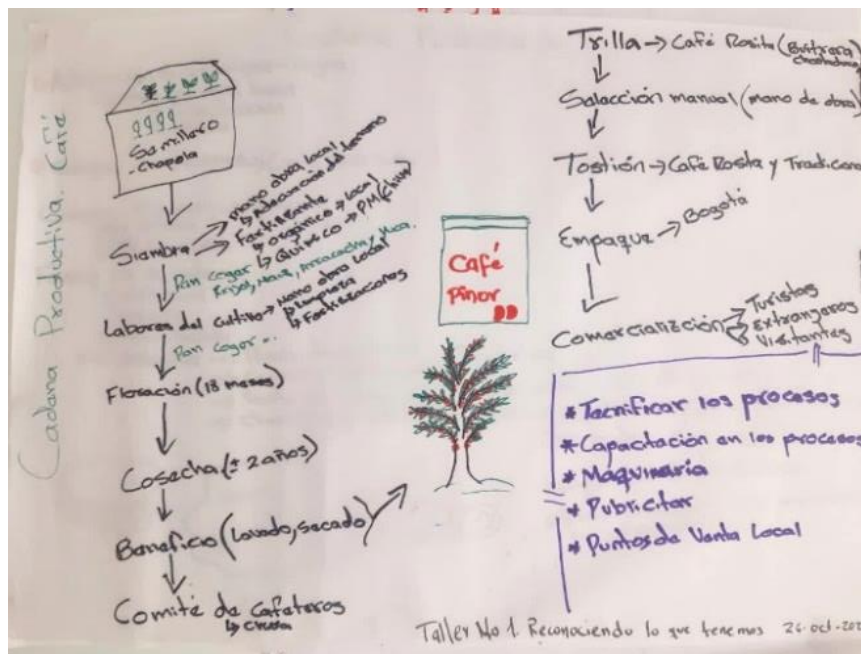 Cadena Productiva. Café
Semillero
- Chapola
Siembra
Mano obra local
Adecuación del terreno
Fertilizante
orgánico → Local
Químico → PM
Pan coger
Frijol, Maíz, Arracacha y
Labores del cultivo → Mano obra local
Limpieza
Fertilizaciones
Pan coger
Floración (18 meses)
Cosecha (± 2 años)
Beneficio (Lavado, secado)
Comité de Cafeteros
Café
Pinor
Trilla → Café Rosita
Selacción manual (mano de obra)
Tostión → Café Rosita y
Empaque → Bogotá
Comercialización
Turistas
Extranjeros
Visitantes
* Tecnificar los procesos
* Capacitación en los procesos
* Maquinaria
* Publicitar
* Puntos de Venta Local
Taller No 1. Reconociendo lo que tenemos